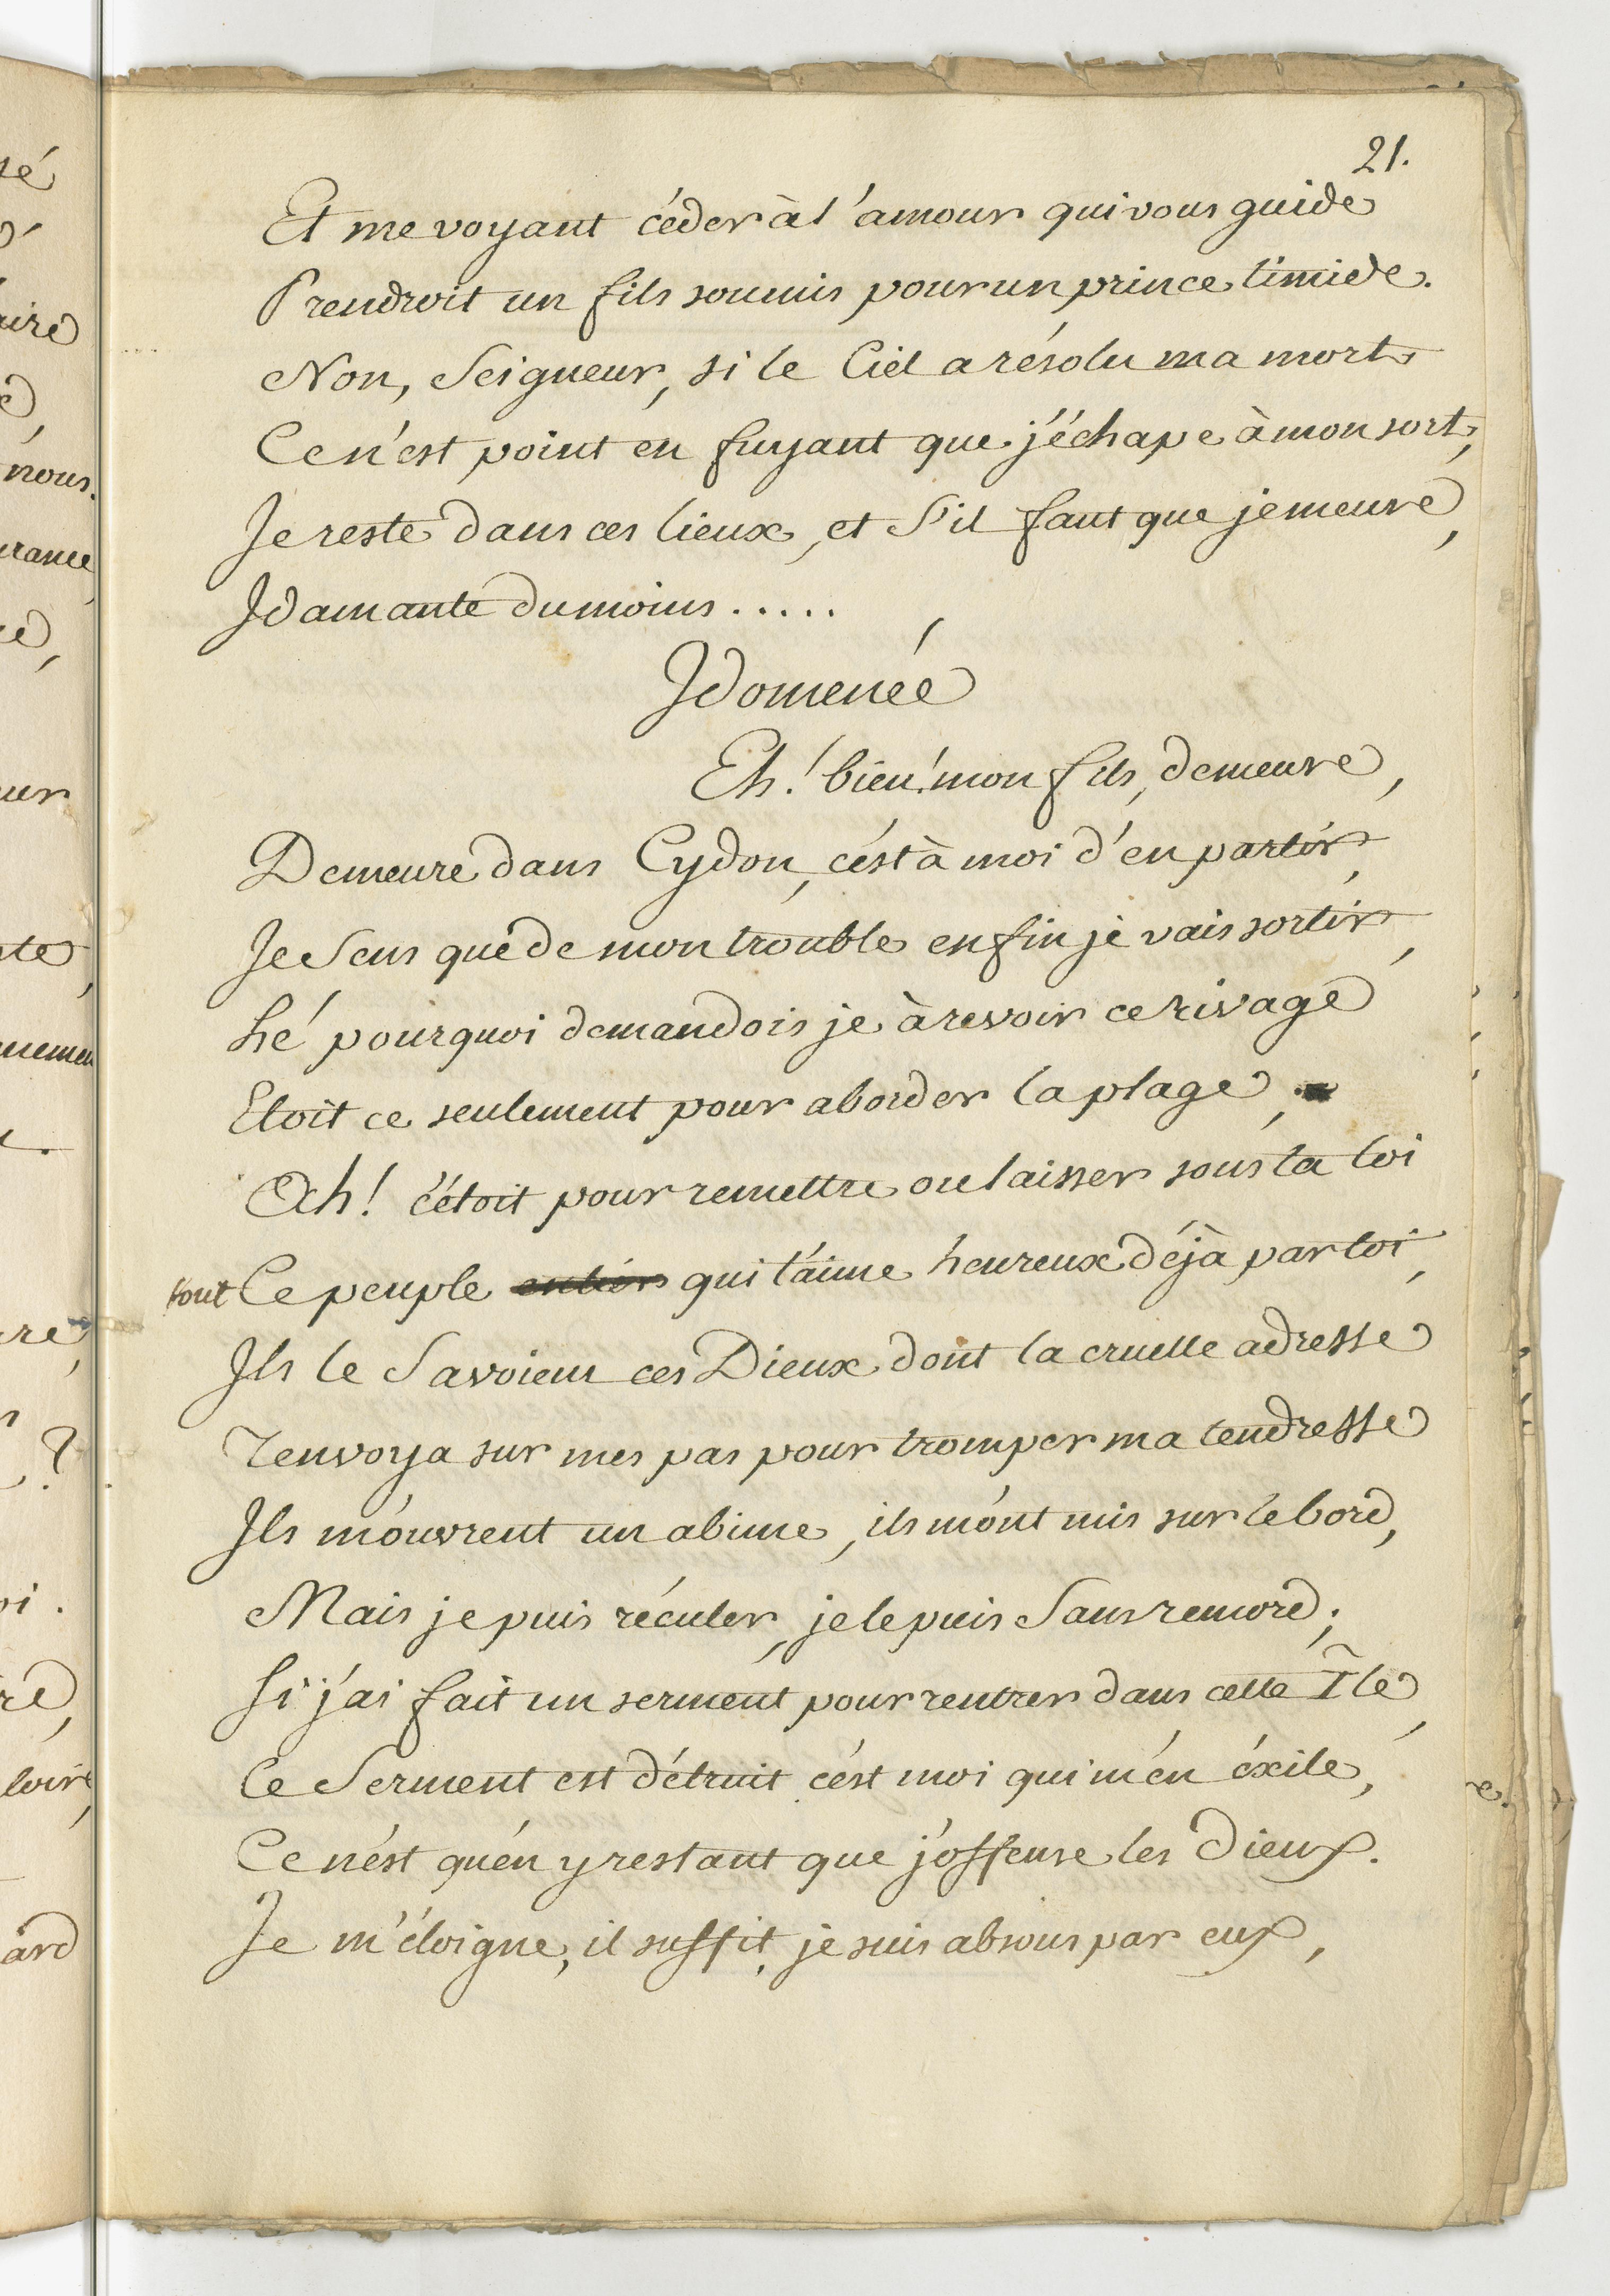 21.
Et me voyant céder à l'amour qui vous guide
Prendroit un fils soumis pour un prince timide.
Non, Seigneur, si le Ciel a résolu ma mort
Ce n'est point en fuyant que j'échape à mon sort,
Je reste dans ces lieux, et S'il faut que je meure,
Idamante du moins.....
Idomenée
Eh! bien! mon fils, demeure,
Demeure dans Cydon, c'est à moi d'en partir,
Je Sens que de mon trouble enfin je vais sortir,
hé pourquoi demandois je à revoir ce rivage
Etoit ce seulement pour aborder la plage,
Ah! c'étoit pour remettre ou laisser sous ta loi
tout Ce peuple entier qui t'aime heureux déjà par toi,
Ils le Savoient ces Dieux dont la cruelle adresse
T'envoya sur mes pas pour tromper ma tendresse
Ils m'ouvrent un abime, ils m'ont mis sur le bord,
Mais je puis réculer, je le puis Sans remord;
Si j'ai fait un serment pour rentrer dans cette Ile,
Ce Serment est détruit c'est moi qui m'en éxile,
Ce n'est qu'en y restant que j'offense les Dieux.
Je m'éloigne, il suffit, je suis absous par eux,